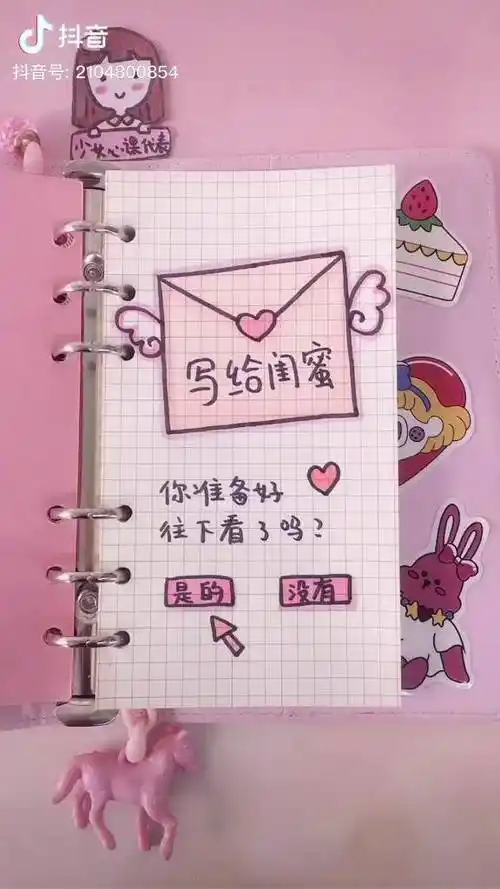 抖音
抖音号: 2104800854
少女心课代表
写给闺蜜
你准备好
往下看了吗?
是的
没有